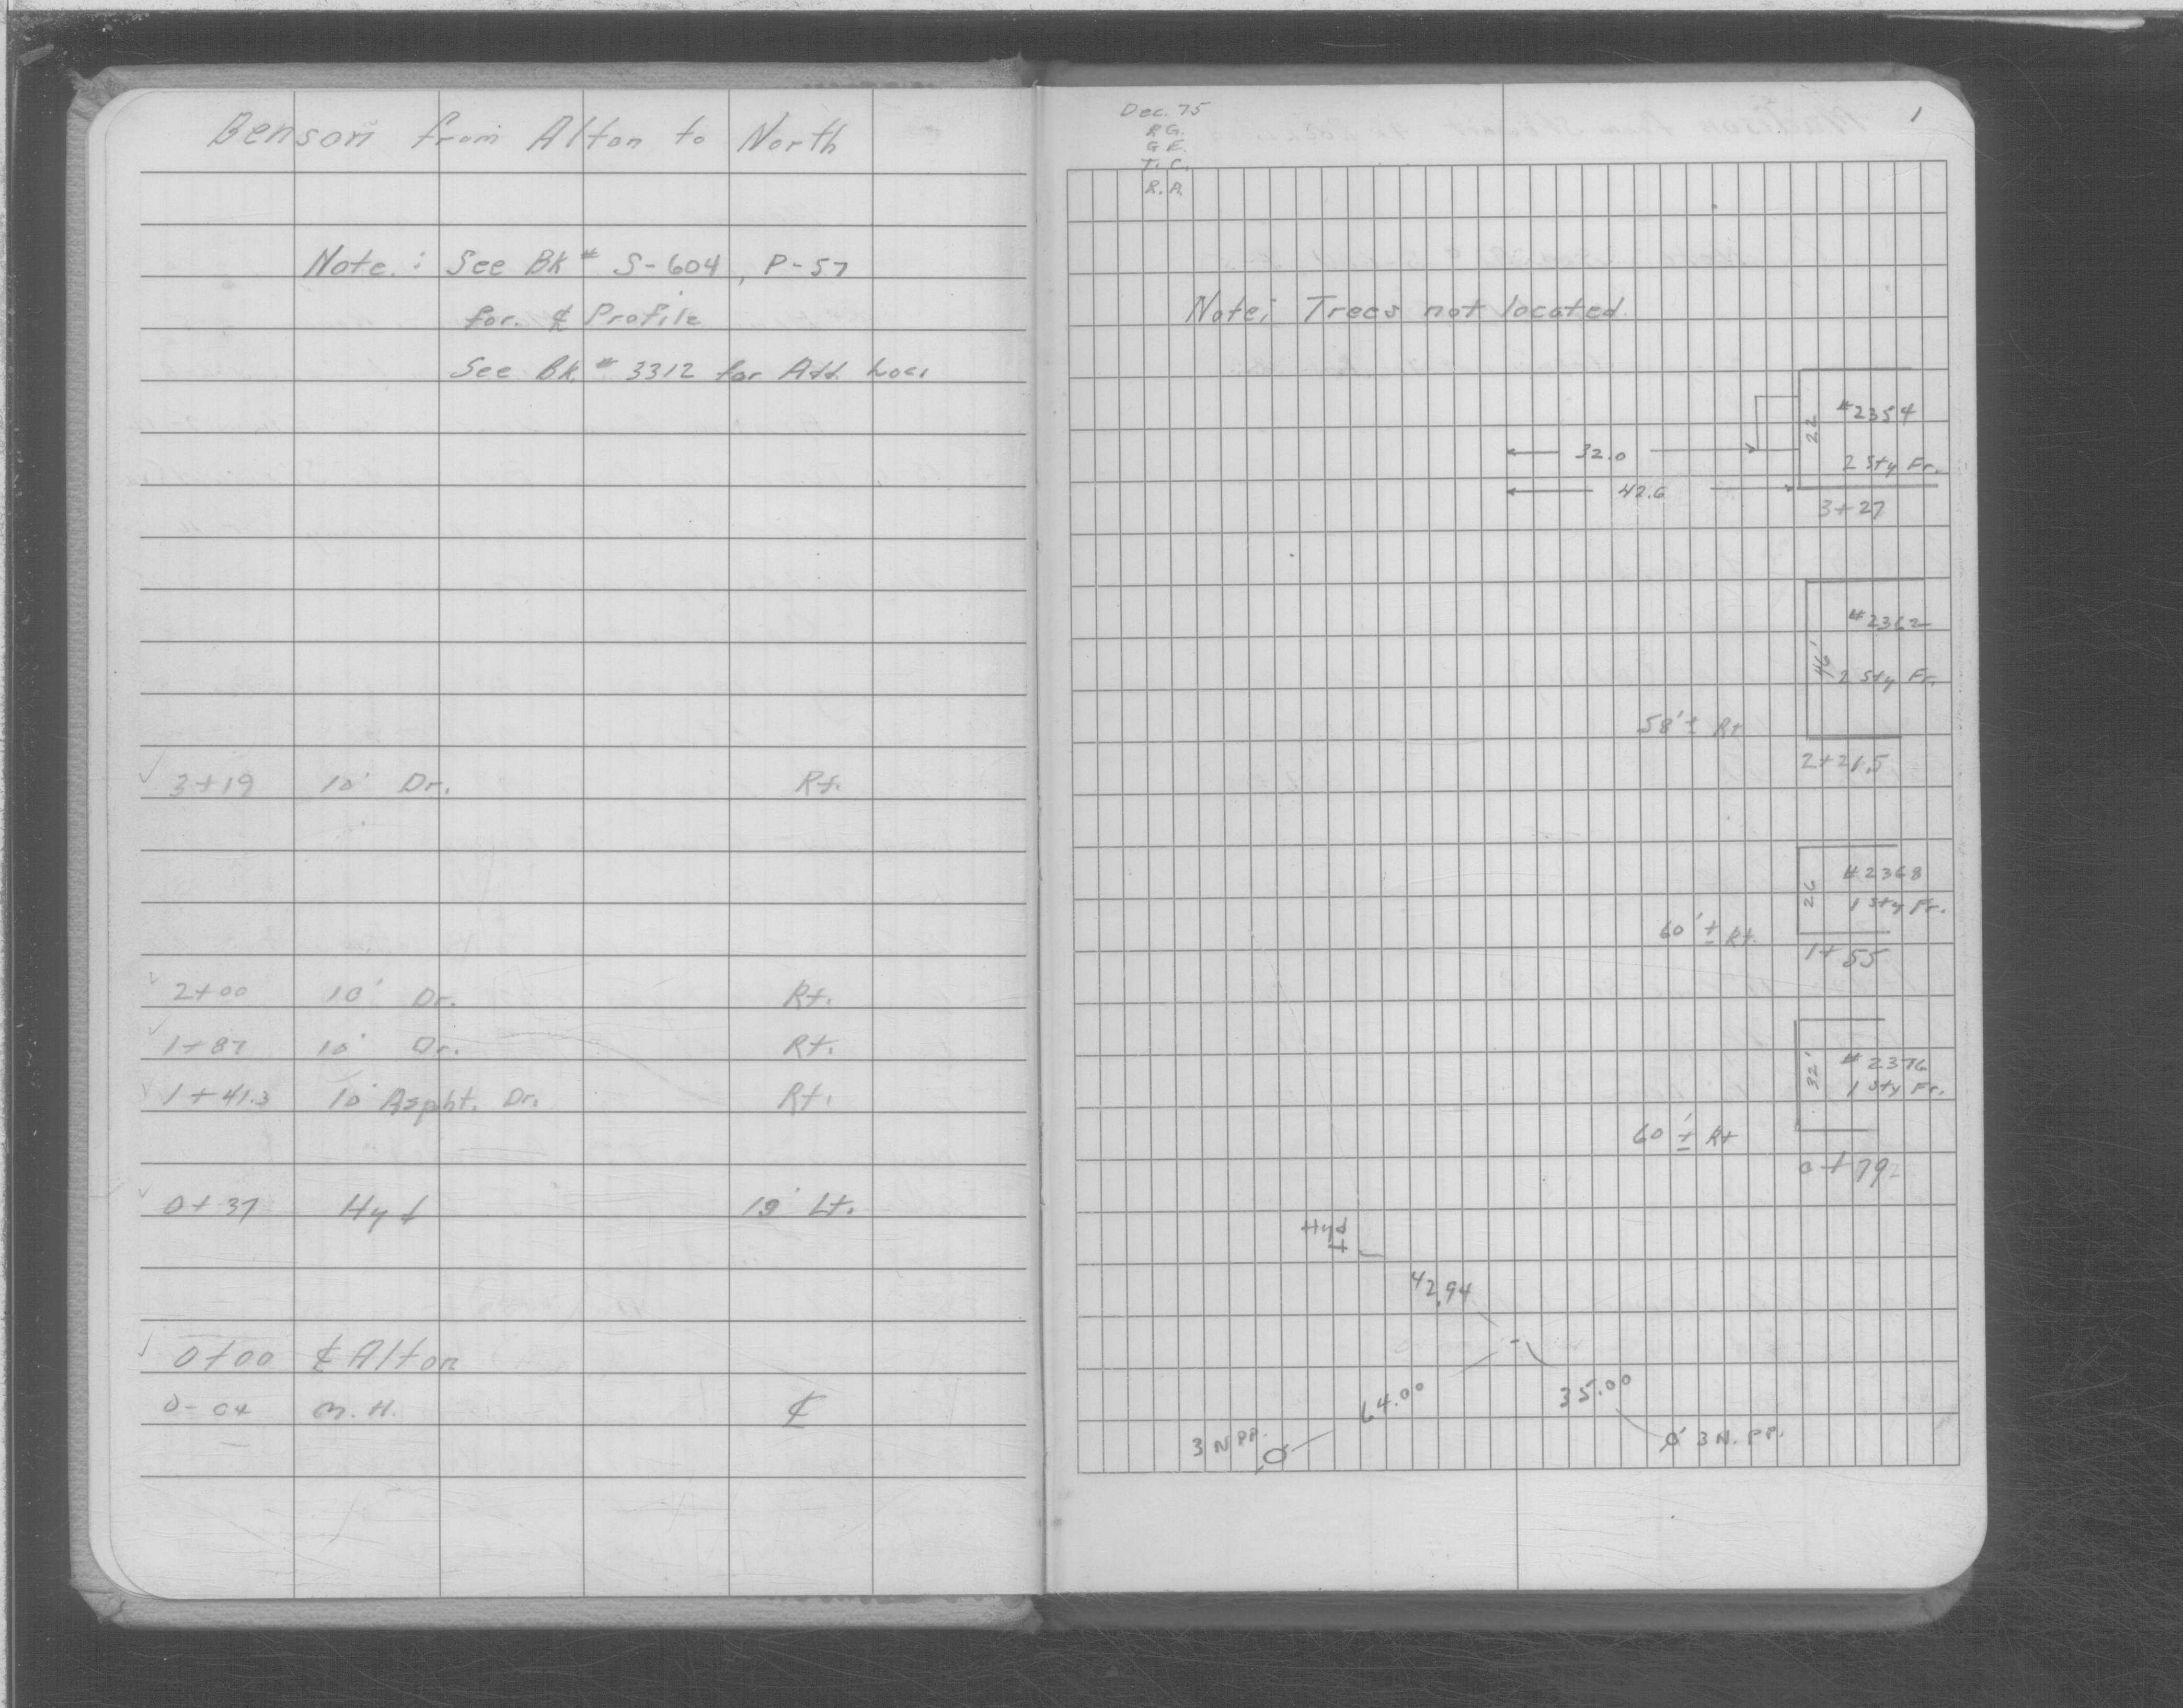 Benson from Alton to North
Note: See Bk # S-604, P-57
for ℄ Profile
See Bk # 3312 for Add. Loc.
3+19 10' Dr. Rt.
2+00 10' Dr. Rt.
1+87 10' Dr. Rt.
1+41.3 10' Aspht. Dr. Rt.
0+37 Hyd 19' Lt.
0+00 ℄ Alton
0-04 M.H. ℄
Dec. 75
R.G.
G.E.
T.C.
R.A.
1
Note; Trees not located.
#2354
22
32.0
2 Sty Fr.
42.6
3+27
#2362
46'
2 Sty Fr.
58'± Rt
2+21.5
#2368
26
1 Sty Fr.
60'± Rt.
1+55
#2376
32'
1 Sty Fr.
60'± Rt
0+79
Hyd
42.94
64.00
35.00
3 N PP.
3 N. PP.